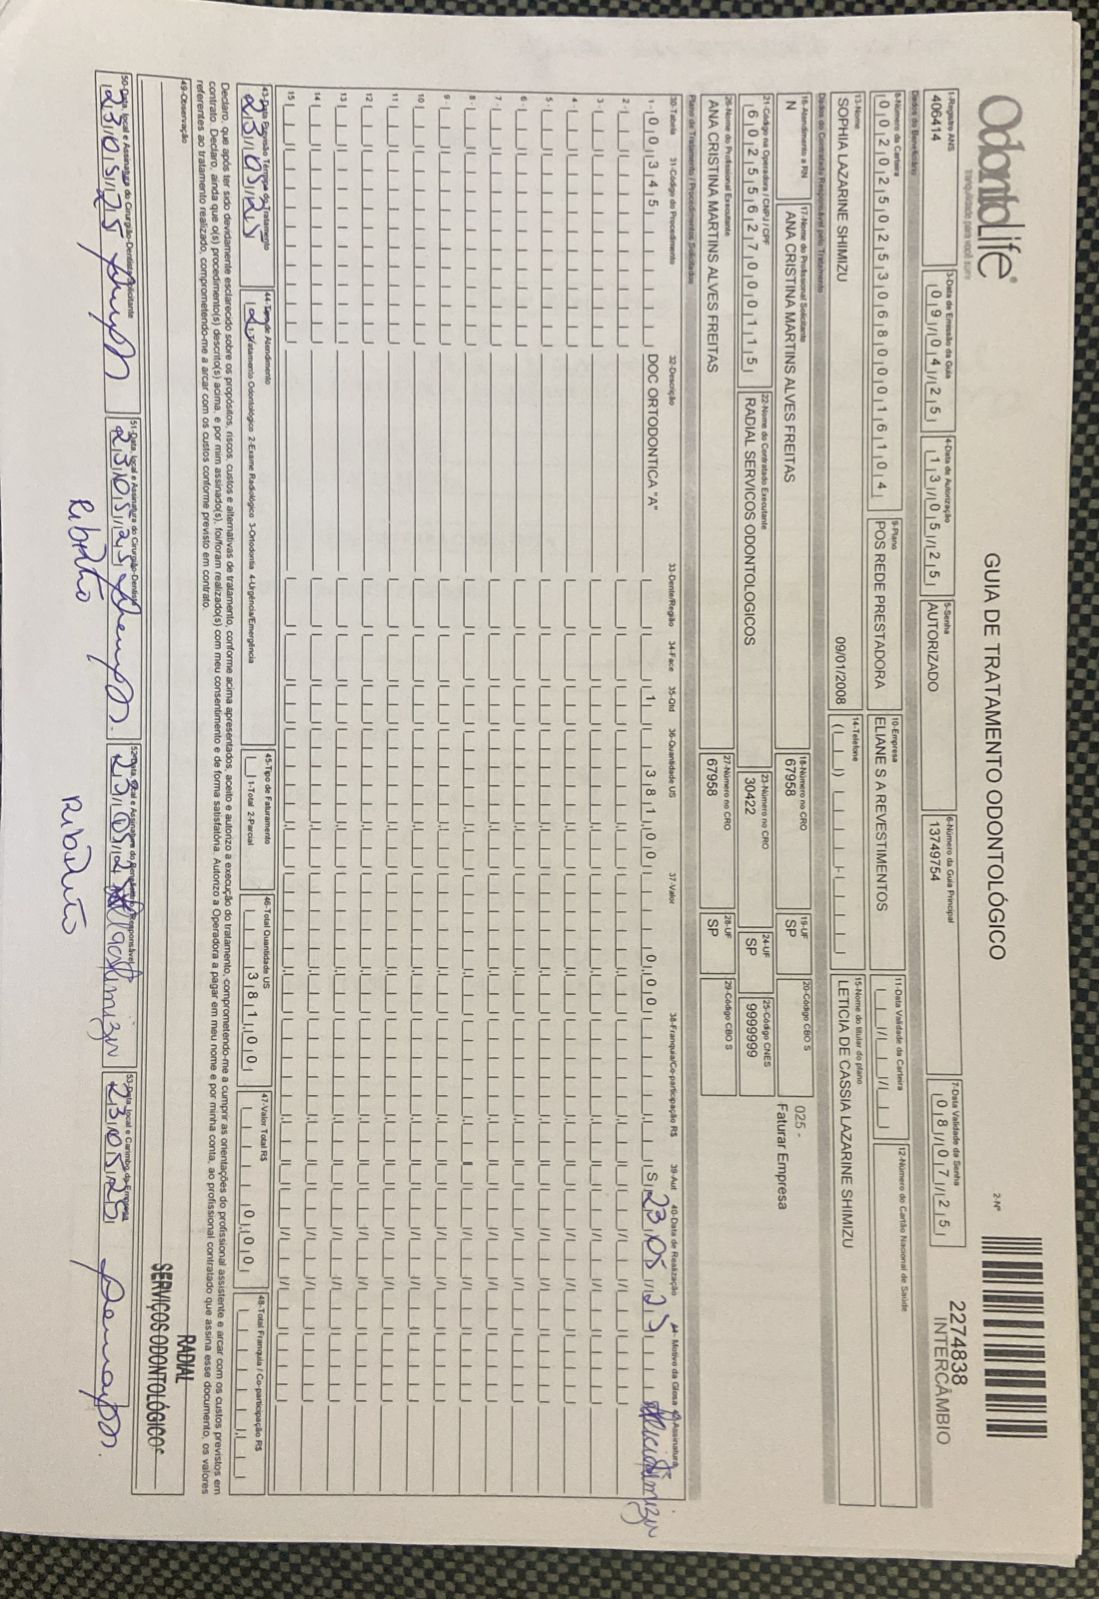 Odontolife®
tranquilidade para você sorrir
GUIA DE TRATAMENTO ODONTOLÓGICO
2-Nº
2274838
INTERCÂMBIO
1-Registro ANS
406414
3-Data de Emissão da Guia
09/04/25
4-Data de Autorização
13/05/25
5-Senha
AUTORIZADO
6-Número da Guia Principal
13749754
7-Data Validade da Senha
08/07/25
Dados do Beneficiário
8-Número da Carteira
002025025306800016104
9-Plano
POS REDE PRESTADORA
10-Empresa
ELIANE S A REVESTIMENTOS
11-Data Validade da Carteira
12-Número do Cartão Nacional de Saúde
13-Nome
SOPHIA LAZARINE SHIMIZU 09/01/2008
14-Telefone
15-Nome do titular do plano
LETICIA DE CASSIA LAZARINE SHIMIZU
Dados do Contratado Responsável pelo Tratamento
16-Atendimento a RN
N
17-Nome do Profissional Solicitante
ANA CRISTINA MARTINS ALVES FREITAS
18-Número no CRO
67958
19-UF
SP
20-Código CBO S
025 -
Faturar Empresa
21-Código na Operadora / CNPJ / CPF
60255627000115
22-Nome do Contratado Executante
RADIAL SERVICOS ODONTOLOGICOS
23-Número no CRO
30422
24-UF
SP
25-Código CNES
9999999
26-Nome do Profissional Executante
ANA CRISTINA MARTINS ALVES FREITAS
27-Número no CRO
67958
28-UF
SP
29-Código CBO S
Plano de Tratamento / Procedimentos Solicitados
30-Tabela 31-Código do Procedimento 32-Descrição 33-Dente/Região 34-Face 35-Qtd 36-Quantidade US 37-Valor 38-Franquia/Co-participação R$ 39-Aut 40-Data de Realização 41-Motivo da Glosa 42-Assinatura
1- 00345 DOC ORTODONTICA "A" 1 381,00 0,00 S 23/05/25
2-
3-
4-
5-
6-
7-
8-
9-
10
11
12
13
14
15
43-Data Previsão Término do Tratamento
23/05/25
44-Tipo de Atendimento
2 1-Tratamento Odontológico 2-Exame Radiológico 3-Ortodontia 4-Urgência/Emergência
45-Tipo de Faturamento
1-Total 2-Parcial
46-Total Quantidade US
381,00
47-Valor Total R$
0,00
48-Total Franquia / Co-participação R$
Declaro, que após ter sido devidamente esclarecido sobre os propósitos, riscos, custos e alternativas de tratamento, conforme acima apresentados, aceito e autorizo a execução do tratamento, comprometendo-me a cumprir as orientações do profissional assistente e arcar com os custos previstos em
contrato. Declaro, ainda que o(s) procedimento(s) descrito(s) acima, e por mim assinado(s), foi/foram realizado(s) com meu consentimento e de forma satisfatória. Autorizo a Operadora a pagar em meu nome e por minha conta, ao profissional contratado que assina esse documento, os valores
referentes ao tratamento realizado, comprometendo-me a arcar com os custos conforme previsto em contrato.
49-Observação
RADIAL
SERVIÇOS ODONTOLÓGICOS
50-Data, local e Assinatura do Cirurgião-Dentista Solicitante
23/05/25
51-Data, local e Assinatura do Cirurgião-Dentista
23/05/25
52-Data, local e Assinatura do Beneficiário/Responsável
23/05/25
53-Data, local e Carimbo da Empresa
23/05/25
Ribeirão
Ribeirão